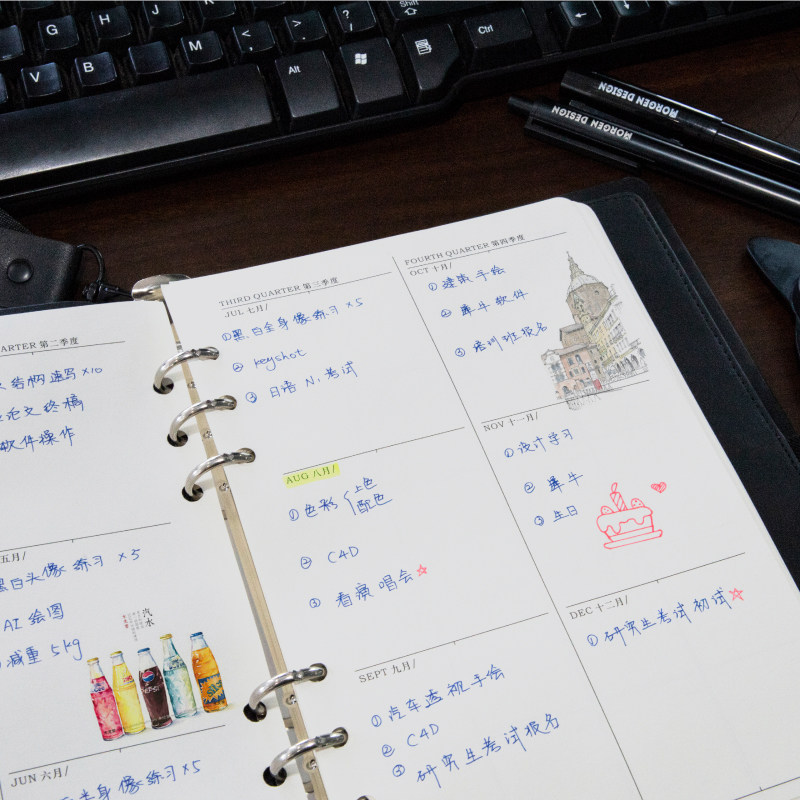 G
H
J
K
L
V
B
N
M
<
,
>
.
?
/
Shift
Alt
Ctrl
MORGEN DESIGN
MORGEN DESIGN
ARTER 第二季度
结构速写 x10
论文终稿
软件操作
五月/
黑白头像练习 x5
AI 绘图
减重 5kg
汽水
PEPSI
JUN 六月/
全身像练习 x5
THIRD QUARTER 第三季度
JUL 七月/
①黑白全身像练习 x5
② keyshot
③ 日语 N1考试
AUG 八月/
①色彩{上色
配色
② C4D
③ 看演唱会☆
SEPT 九月/
① 汽车透视手绘
② C4D
③ 研究生考试报名
FOURTH QUARTER 第四季度
OCT 十月/
①建筑手绘
② 犀牛软件
③ 培训班报名
NOV 十一月/
①设计学习
② 犀牛
③ 生日
DEC 十二月/
① 研究生考试初试☆